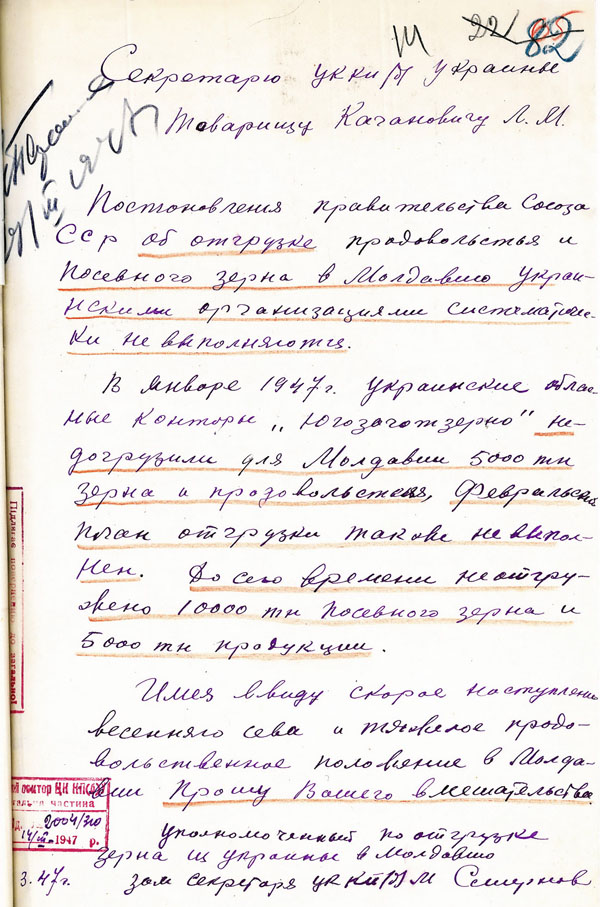 Ш 221 82
Секретарю ЦК КП(б) Украины
Товарищу Качановичу Л. М.
Постоновления правительства Союза
ССР об отгрузке продовольстья и
Посевного зерна в Молдавию Украи-
нскими организациями систематиче-
ки не выполняются.
В январе 1947г. Украинские облас
ные конторы „Югозаготзерно" не-
догрузили для Молдавии 5000 тн
зерна и продовольствия, Февральский
план отгрузки также не выпол-
нен. До сего времени не отгру-
жено 10000 тн посевного зерна и
5000 тн продукции.
Имея ввиду скорое наступление
весеннего сева и тяжелое продо-
вольственное положение в Молда-
вии Прошу Вашего вмешательства
Уполномоченный по отгрузке
зерна из Украины в Молдавию
3.47г. зам секретаря ЦК КП(б)М Смирнов
Підлягає до загальної
й сектор ЦК КП(б)У
альна частина
2004/310
14/III 1947 р.